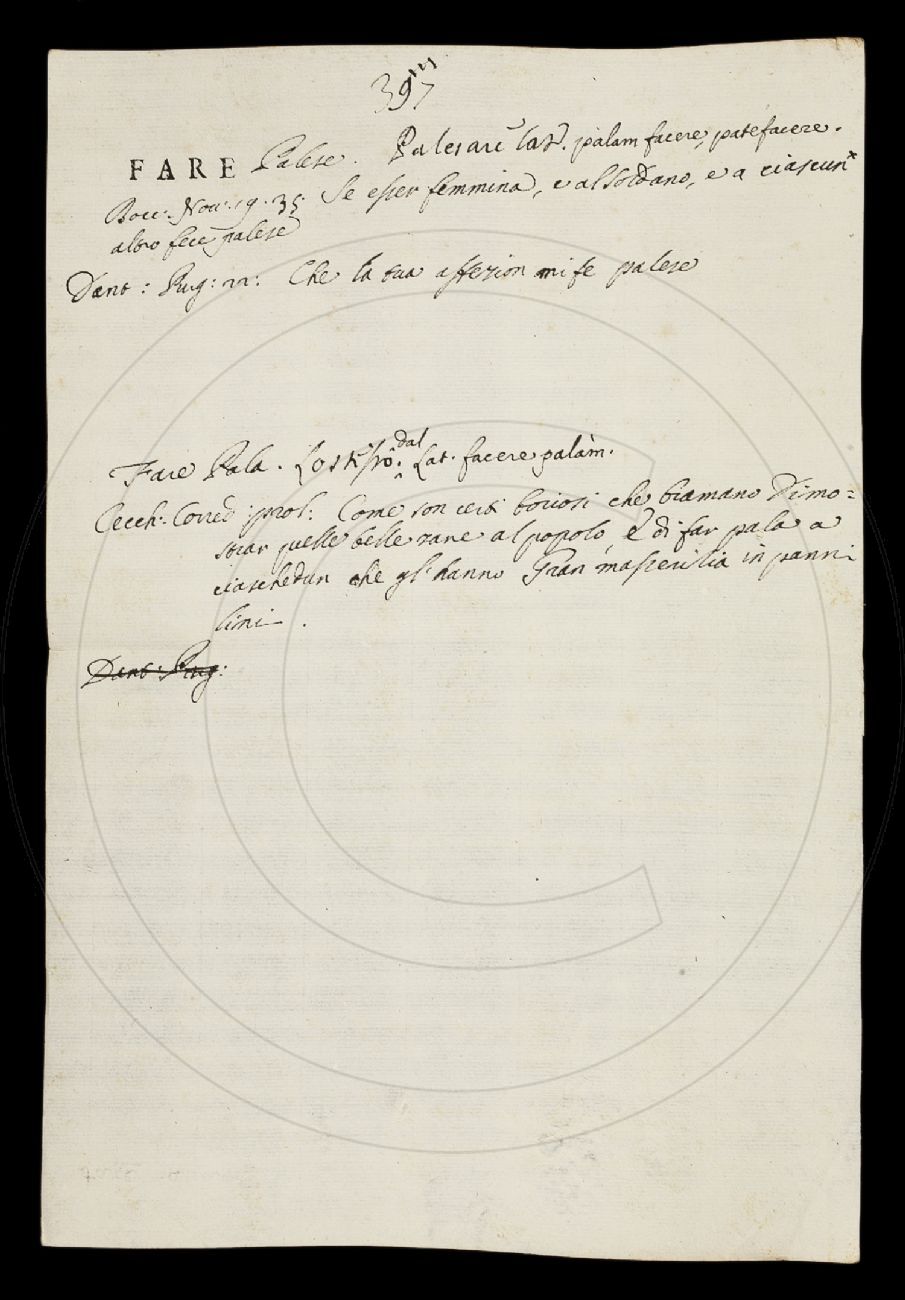 397
FARE Palese. Palesare Lat. pàlam facere, patefacere.
Bocc. Nov. 19. 35. Se esser femmina, e al Soldano, e a ciascun
altro fece palese
Dant: Purg: 22: Che la tua affezion mi fe palese
Fare Pala. Lo stesso. dal Lat. facere palàm.
Cecch: Corred: prol: Come son certi boriosi che bramano Dimo=
strar quelle belle zane al popolo, e di far pala a
ciaschedun che gl'hanno Gran masserizia in panni
lini.
Dant: Purg: